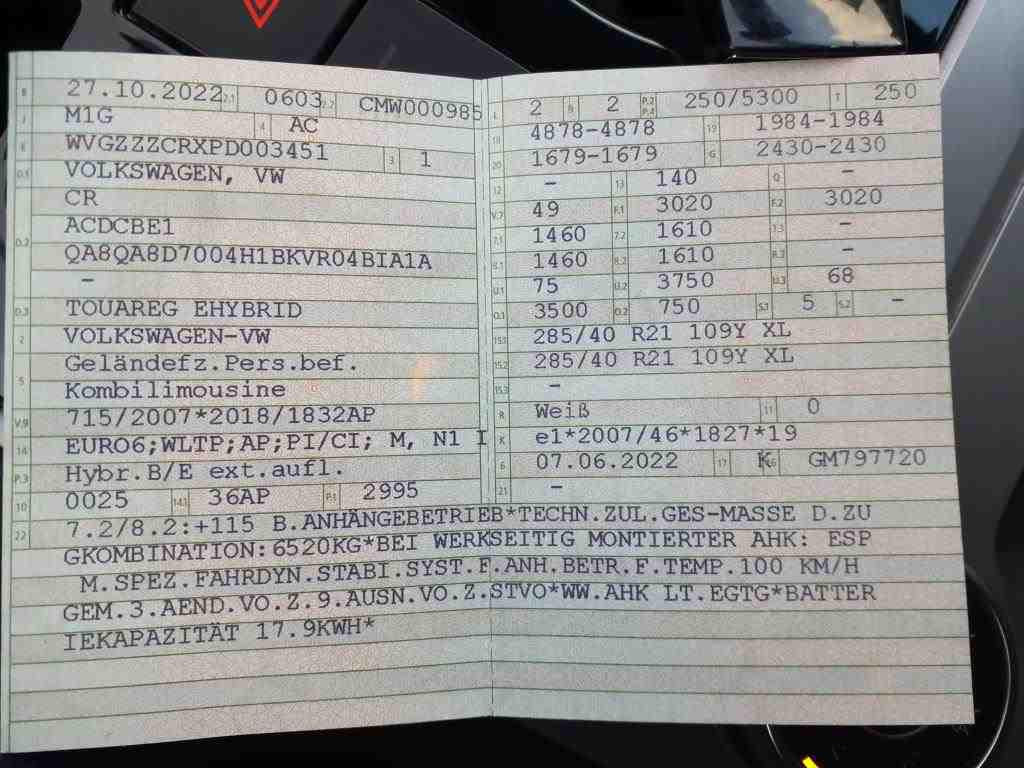 B 27.10.2022 2.1 0603 2.2 CMW000985
J M1G 4 AC
E WVGZZZCRXPD003451 3 1
D.1 VOLKSWAGEN, VW
CR
D.2 ACDCBE1
QA8QA8D7004H1BKVR04BIA1A
–
D.3 TOUAREG EHYBRID
2 VOLKSWAGEN-VW
5 Geländefz.Pers.bef.
Kombilimousine
V.9 715/2007*2018/1832AP
14 EURO6;WLTP;AP;PI/CI; M, N1 I
P.3 Hybr.B/E ext.aufl.
10 0025 14.1 36AP P.1 2995
L 2 9 2 P.2 P.4 250/5300 T 250
18 4878-4878 19 1984-1984
20 1679-1679 G 2430-2430
12 – 13 140 Q –
V.7 49 F.1 3020 F.2 3020
7.1 1460 7.2 1610 7.3 –
8.1 1460 8.2 1610 8.3 –
U.1 75 U.2 3750 U.3 68
O.1 3500 O.2 750 S.1 5 S.2 –
15.1 285/40 R21 109Y XL
15.2 285/40 R21 109Y XL
15.3 –
R Weiß 11 0
K e1*2007/46*1827*19
6 07.06.2022 17 K 16 GM797720
21 –
22 7.2/8.2:+115 B.ANHÄNGEBETRIEB*TECHN.ZUL.GES-MASSE D.ZU
GKOMBINATION:6520KG*BEI WERKSEITIG MONTIERTER AHK: ESP
M.SPEZ.FAHRDYN.STABI.SYST.F.ANH.BETR.F.TEMP.100 KM/H
GEM.3.AEND.VO.Z.9.AUSN.VO.Z.STVO*WW.AHK LT.EGTG*BATTER
IEKAPAZITÄT 17.9KWH*